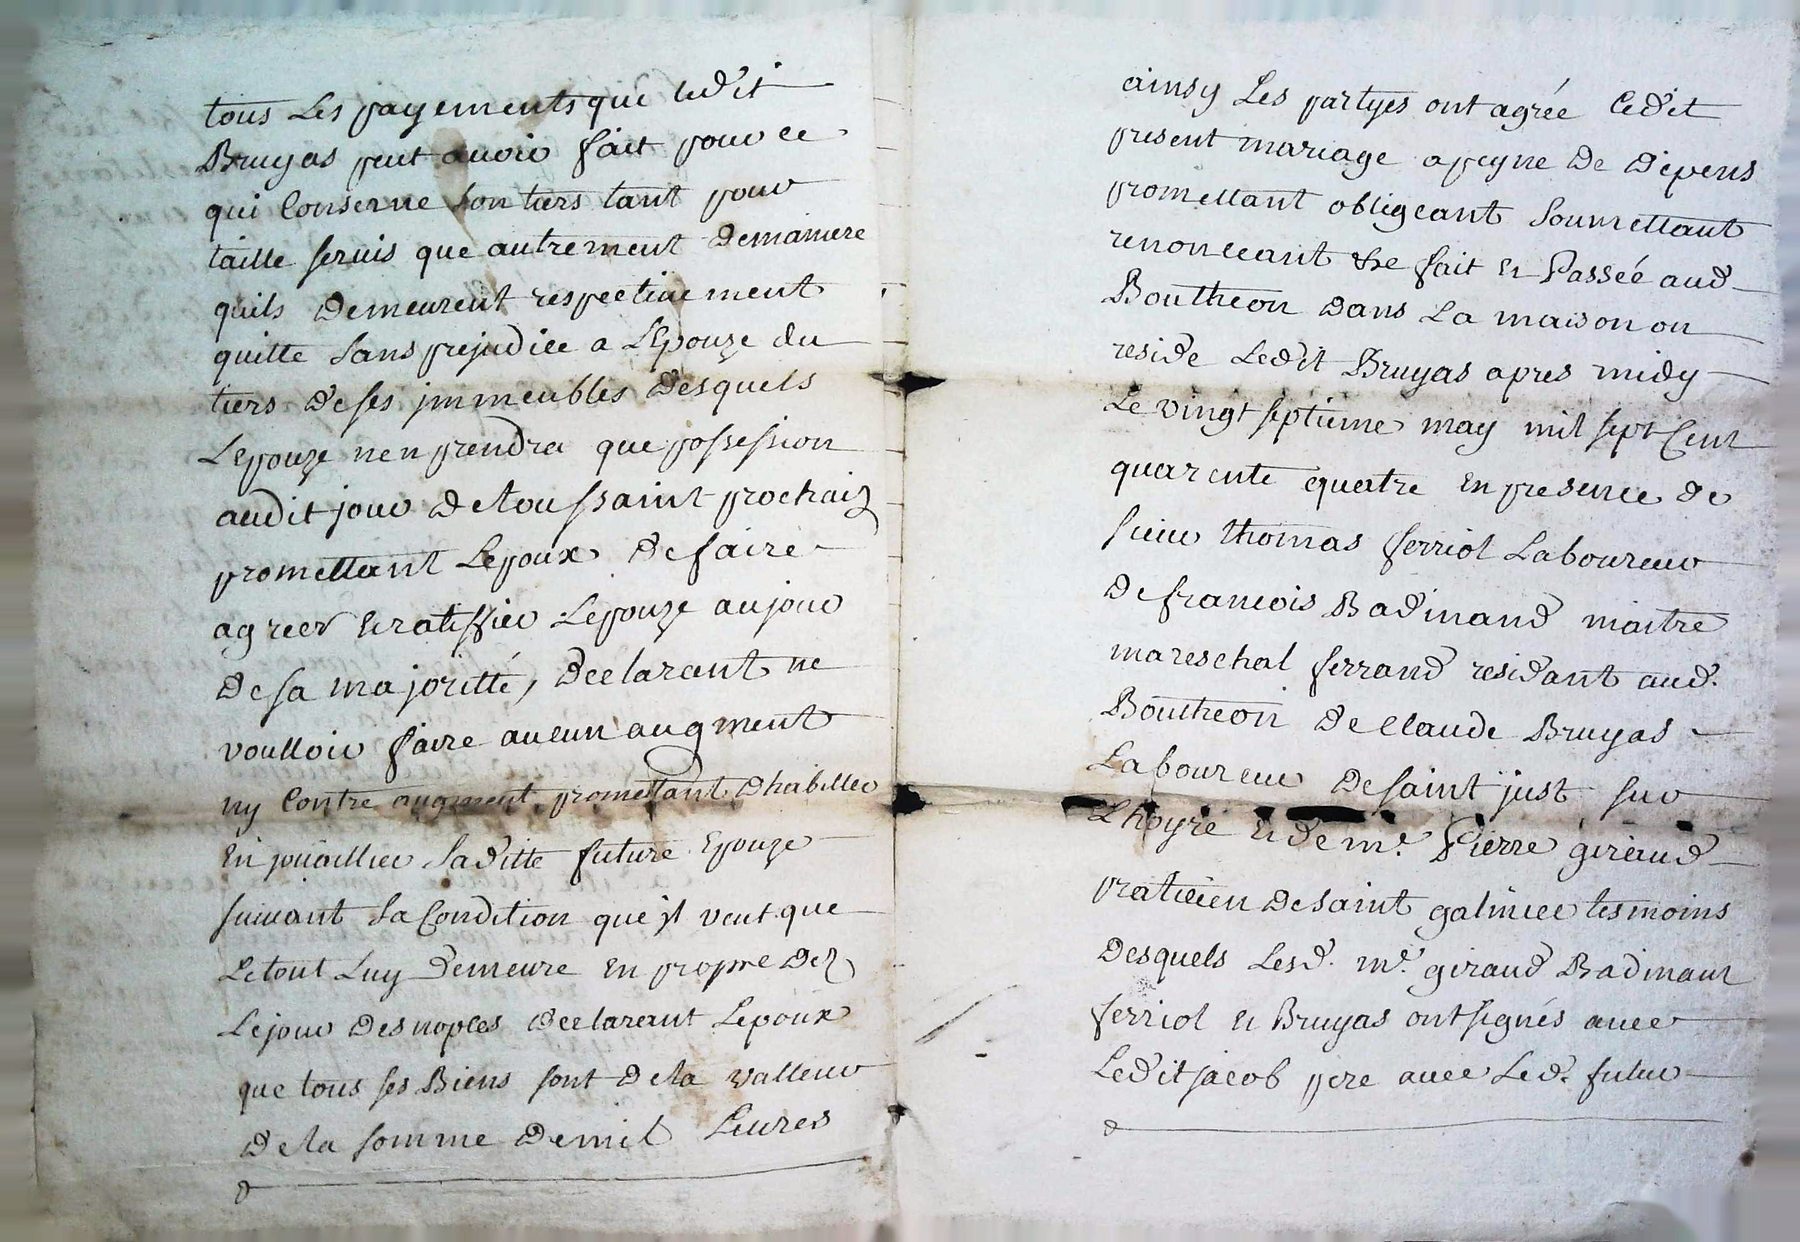 tous Les payements que ledit
Bruyas peut avoir fait pour ce
qui Conserne son tiers tant pour
taille servis que autrement demaniere
quils demeurent respectivement
quitte sans prejudice a Lepouze du
tiers de ses jmmeubles desquels
Lepouze nen prendra que possession
audit jour de toussaint prochain
promettant Lepoux de faire
agreer et ratiffier Lepouze au jour
de sa majoritté, declarant ne
voulloir faire aucun augment
ny Contre augment, promettant dhabiller
En jouaillier Laditte future Epouze
suivant sa Condition que jl veut que
Le tout Luy demeure en propre dez
Le jour des nopces declarant Lepoux
que tous ses Biens sont de la valleur
de la somme de mil Livres
ainsy Les partyes ont agréé Cedit
present mariage a peyne de depens
promettant obligeant soumettant
renonceant &ce fait et Passéé aud
Bouthéon dans La maison ou
reside Ledit Bruyas apres midy
Le vingt septieme may mil sept Cent
quarente quatre en presence de
sieur thomas ferriol Laboureur
de francois Badinand maitre
mareschal ferrand residant aud.
Bouthéon de Claude Bruyas
Laboureur de saint just sur
Lhoyre et de me. Pierre giraud
praticien de saint galmier tesmoins
desquels Lesd. me. giraud Badinant
ferriol et Bruyas ont signés avec
Ledit jacob pere avec Led. futur